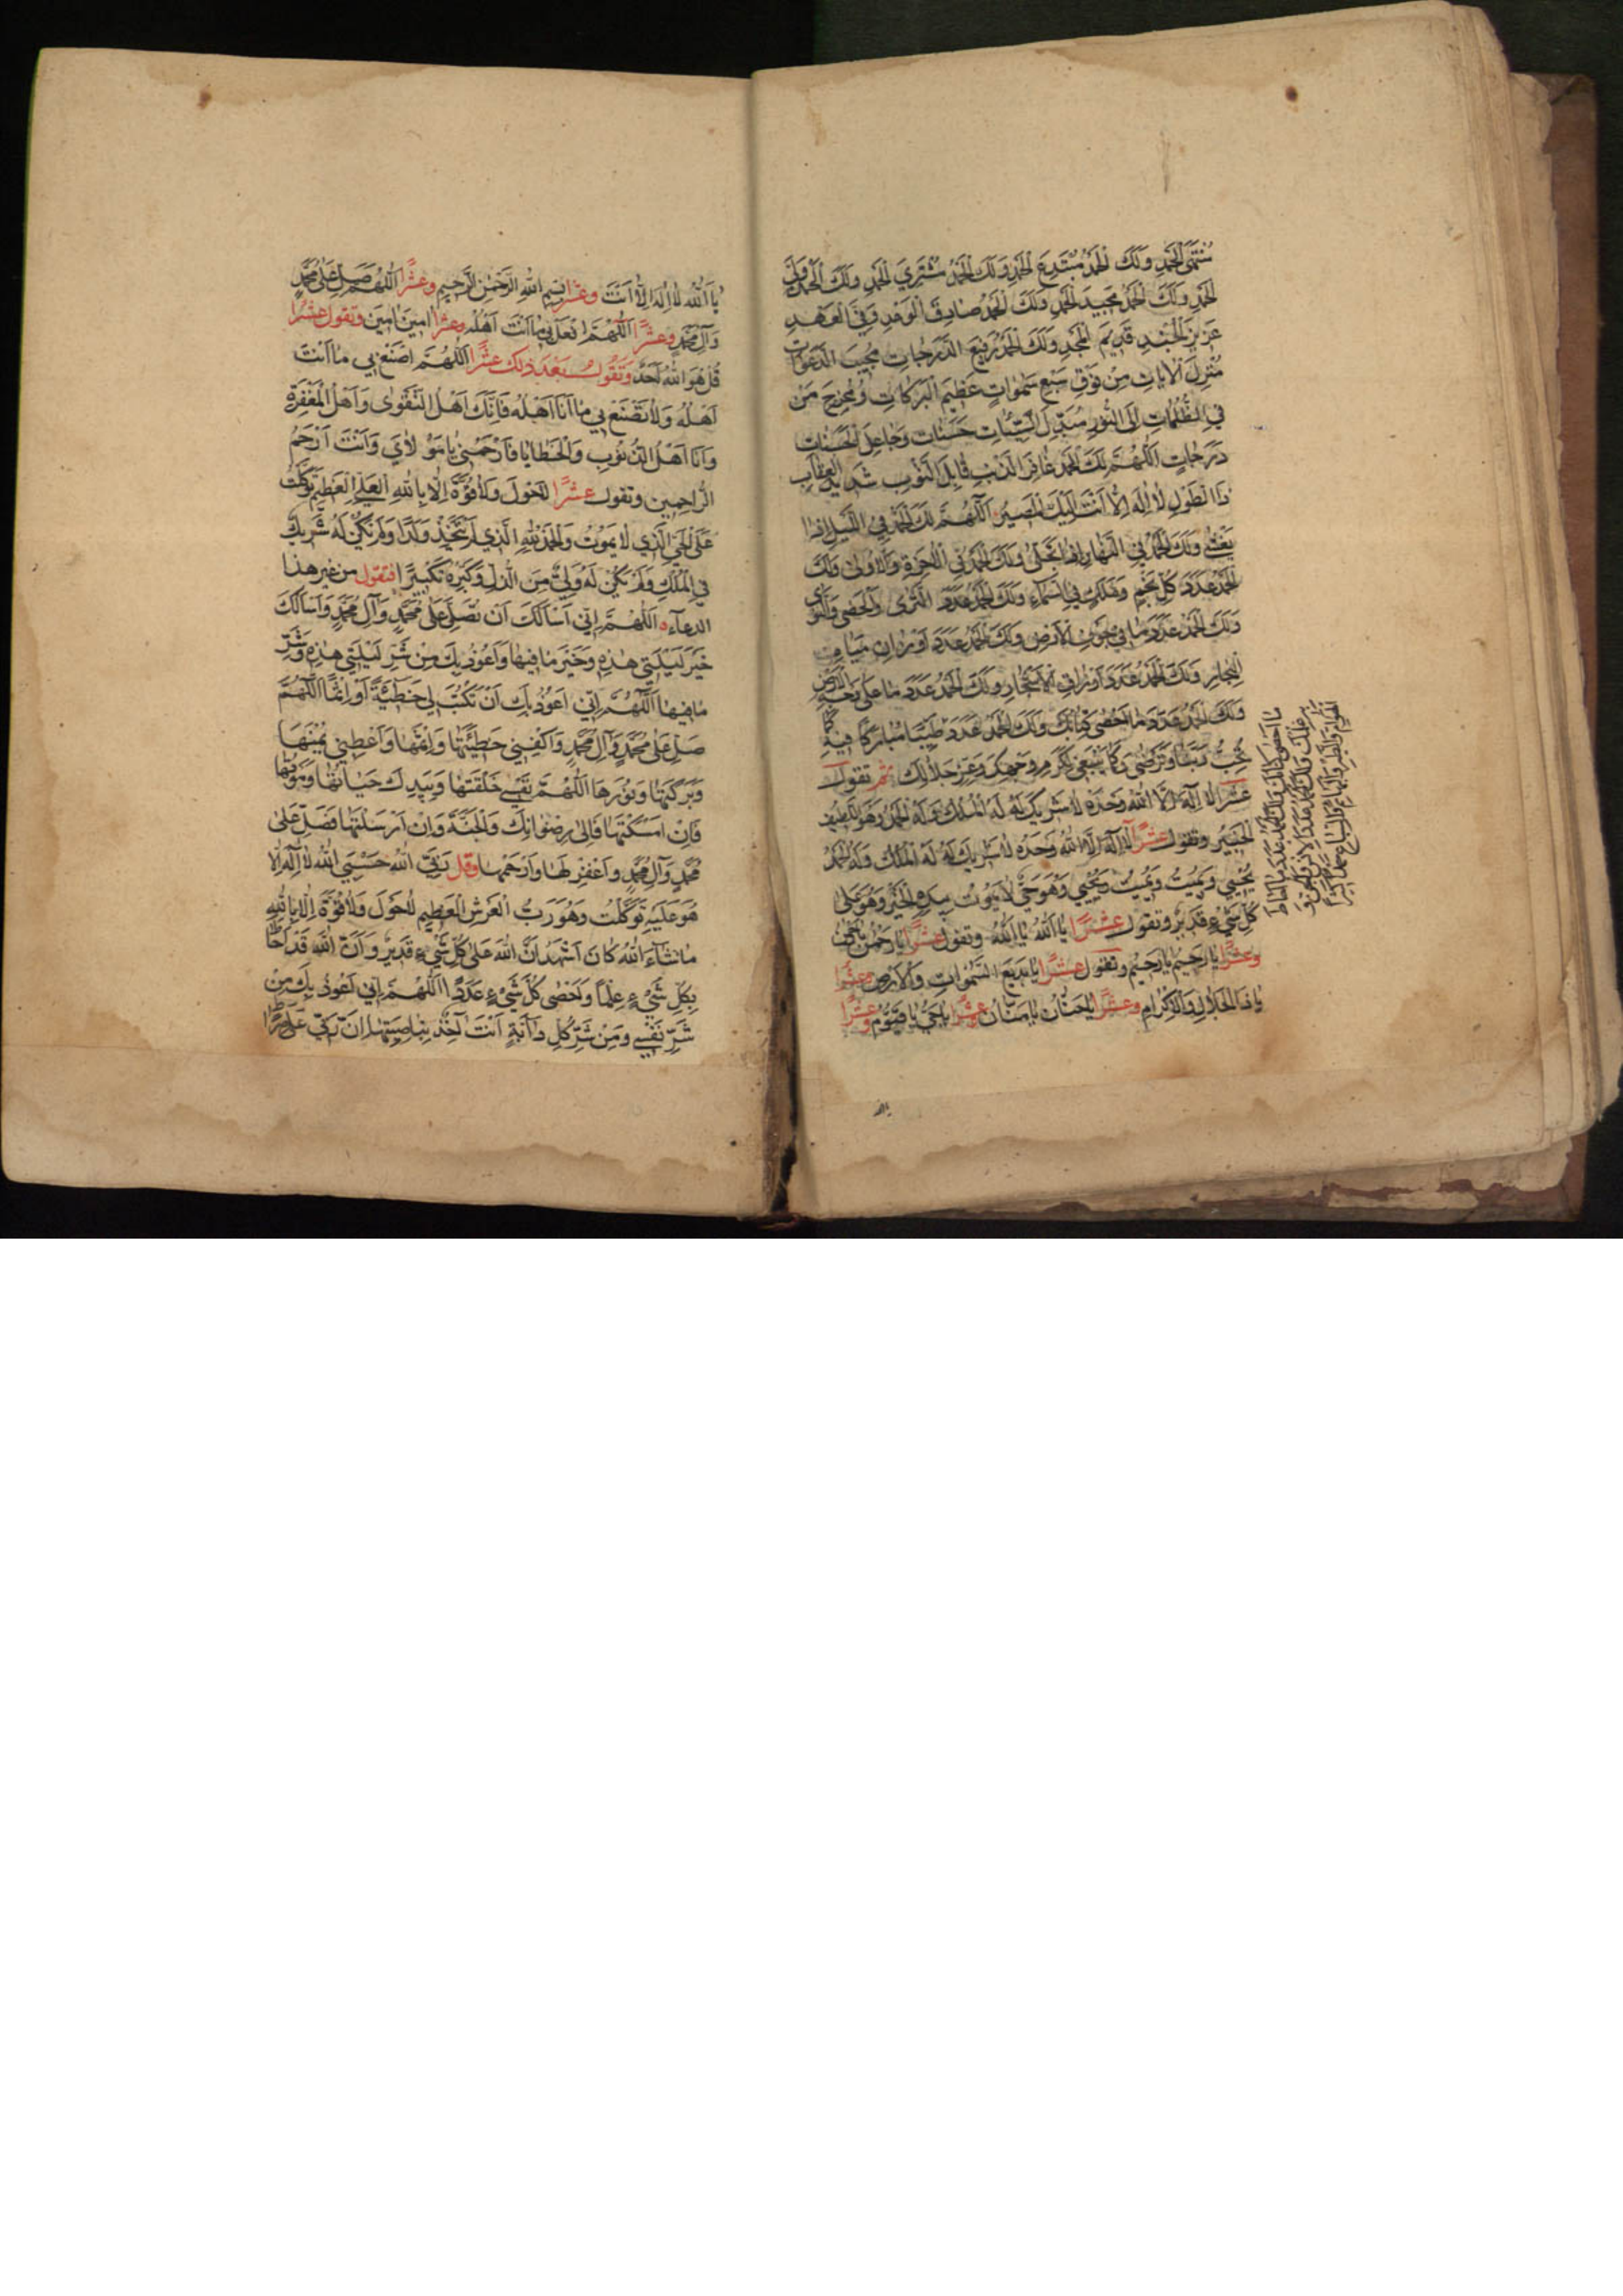 مُنْتَهَى الْحَمْدِ وَلَكَ الْحَمْدُ مُبْتَدِعَ الْحَمْدِ وَلَكَ الْحَمْدُ مُشْتَرِيَ الْحَمْدِ وَلَكَ الْحَمْدُ وَلِيَّ
الْحَمْدِ وَلَكَ الْحَمْدُ مَجِيدَ الْحَمْدِ وَلَكَ الْحَمْدُ صَادِقَ الْوَعْدِ وَفِيَّ الْعَهْدِ
عَزِيزَ الْجُنْدِ قَدِيمَ الْمَجْدِ وَلَكَ الْحَمْدُ رَفِيعَ الدَّرَجَاتِ مُجِيبَ الدَّعَوَاتِ
مُنْزِلَ الْاٰيَاتِ مِنْ فَوْقِ سَبْعِ سَمٰوَاتٍ عَظِيمَ الْبَرَكَاتِ وَمُخْرِجَ مَنْ
فِي الظُّلُمَاتِ إِلَى النُّورِ مُبَدِّلَ السَّيِّئَاتِ حَسَنَاتٍ وَجَاعِلَ الْحَسَنَاتِ
دَرَجَاتٍ اَللّٰهُمَّ لَكَ الْحَمْدُ غَافِرَ الذَّنْبِ قَابِلَ التَّوْبِ شَدِيدَ الْعِقَابِ
ذَا الطَّوْلِ لَا اِلٰهَ اِلَّا اَنْتَ اِلَيْكَ الْمَصِيرُ اَللّٰهُمَّ لَكَ الْحَمْدُ فِي اللَّيْلِ اِذَا
يَغْشٰى وَلَكَ الْحَمْدُ فِي النَّهَارِ اِذَا تَجَلّٰى وَلَكَ الْحَمْدُ فِي الْاٰخِرَةِ وَالْاُولٰى وَلَكَ
الْحَمْدُ عَدَدَ كُلِّ نَجْمٍ وَمَلَكٍ فِي السَّمَاءِ وَلَكَ الْحَمْدُ عَدَدَ الثَّرٰى وَالْحَصٰى وَالنَّوٰى
وَلَكَ الْحَمْدُ عَدَدَ مَا فِي جَوْفِ الْاَرْضِ وَلَكَ الْحَمْدُ عَدَدَ اَوْزَانِ مِيَاهِ
الْبِحَارِ وَلَكَ الْحَمْدُ عَدَدَ اَوْرَاقِ الْاَشْجَارِ وَلَكَ الْحَمْدُ عَدَدَ مَا عَلٰى وَجْهِ الْاَرْضِ
وَلَكَ الْحَمْدُ عَدَدَ مَا اَحْصٰى كِتَابُكَ وَلَكَ الْحَمْدُ عَدَدَ طَيِّبًا مُبَارَكًا فِيهِ كَمَا
تُحِبُّ رَبَّنَا وَتَرْضٰى وَكَمَا يَنْبَغِي لِكَرَمِ وَجْهِكَ وَعِزِّ جَلَالِكَ ثم تقول
عَشْرًا لَا اِلٰهَ اِلَّا اللّٰهُ وَحْدَهُ لَا شَرِيكَ لَهُ لَهُ الْمُلْكُ وَلَهُ الْحَمْدُ وَهُوَ اللَّطِيفُ
الْخَبِيرُ وتقول عشرًا لَا اِلٰهَ اِلَّا اللّٰهُ وَحْدَهُ لَا شَرِيكَ لَهُ لَهُ الْمُلْكُ وَلَهُ الْحَمْدُ
يُحْيِي وَيُمِيتُ وَيُمِيتُ وَيُحْيِي وَهُوَ حَيٌّ لَا يَمُوتُ بِيَدِهِ الْخَيْرُ وَهُوَ عَلٰى
كُلِّ شَيْءٍ قَدِيرٌ وتقول عشرًا يَا اَللّٰهُ يَا اَللّٰهُ وتقول عشرًا يَا رَحْمٰنُ يَا رَحْمٰنُ
وعشرًا يَا رَحِيمُ يَا رَحِيمُ وتقول عشرًا يَا بَدِيعَ السَّمٰوَاتِ وَالْاَرْضِ وعشرًا
يَا ذَا الْجَلَالِ وَالْاِكْرَامِ وعشرًا يَا حَنَّانُ يَا مَنَّانُ وعشرًا يَا حَيُّ يَا قَيُّومُ وعشرًا
يَا اَللّٰهُ لَا اِلٰهَ اِلَّا اَنْتَ وعشرًا بِسْمِ اللّٰهِ الرَّحْمٰنِ الرَّحِيمِ وعشرًا اَللّٰهُمَّ صَلِّ عَلٰى مُحَمَّدٍ
وَآلِ مُحَمَّدٍ وعشرًا اَللّٰهُمَّ افْعَلْ بِي مَا اَنْتَ اَهْلُهُ وعشرًا اٰمِينَ اٰمِينَ وتقول عشرًا
قُلْ هُوَ اللّٰهُ اَحَدٌ وَتَقُولُ بَعْدَ ذٰلِكَ عَشْرًا اَللّٰهُمَّ اصْنَعْ بِي مَا اَنْتَ
اَهْلُهُ وَلَا تَصْنَعْ بِي مَا اَنَا اَهْلُهُ فَاِنَّكَ اَهْلُ التَّقْوٰى وَاَهْلُ الْمَغْفِرَةِ
وَاَنَا اَهْلُ الذُّنُوبِ وَالْخَطَايَا فَارْحَمْنِي يَا مَوْلَايَ وَاَنْتَ اَرْحَمُ
الرَّاحِمِين وتقول عشرًا لَا حَوْلَ وَلَا قُوَّةَ اِلَّا بِاللّٰهِ الْعَلِيِّ الْعَظِيمِ تَوَكَّلْتُ
عَلَى الْحَيِّ الَّذِي لَا يَمُوتُ وَالْحَمْدُ لِلّٰهِ الَّذِي لَمْ يَتَّخِذْ وَلَدًا وَلَمْ يَكُنْ لَهُ شَرِيكٌ
فِي الْمُلْكِ وَلَمْ يَكُنْ لَهُ وَلِيٌّ مِنَ الذُّلِّ وَكَبِّرْهُ تَكْبِيرًا فتقول من غير هذا
الدعاء اَللّٰهُمَّ اِنِّي اَسْاَلُكَ اَنْ تُصَلِّيَ عَلٰى مُحَمَّدٍ وَآلِ مُحَمَّدٍ وَاَسْاَلُكَ
خَيْرَ لَيْلَتِي هٰذِهِ وَخَيْرَ مَا فِيهَا وَاَعُوذُ بِكَ مِنْ شَرِّ لَيْلَتِي هٰذِهِ وَشَرِّ
مَا فِيهَا اَللّٰهُمَّ اِنِّي اَعُوذُ بِكَ اَنْ تَكْتُبَ لِي خَطِيئَةً اَوْ اِثْمًا اَللّٰهُمَّ
صَلِّ عَلٰى مُحَمَّدٍ وَآلِ مُحَمَّدٍ وَاكْفِنِي خَطِيئَتَهَا وَاِثْمَهَا وَاَعْطِنِي يُمْنَهَا
وَبَرَكَتَهَا وَنُورَهَا اَللّٰهُمَّ نَفْسِي خَلَقْتَهَا وَبِيَدِكَ حَيَاتُهَا وَمَوْتُهَا
فَاِنْ اَمْسَكْتَهَا فَاِلٰى رِضْوَانِكَ وَالْجَنَّةِ وَاِنْ اَرْسَلْتَهَا فَصَلِّ عَلٰى
مُحَمَّدٍ وَآلِ مُحَمَّدٍ وَاغْفِرْ لَهَا وَارْحَمْهَا وقل رَبِّيَ اللّٰهُ حَسْبِيَ اللّٰهُ لَا اِلٰهَ اِلَّا
هُوَ عَلَيْهِ تَوَكَّلْتُ وَهُوَ رَبُّ الْعَرْشِ الْعَظِيمِ لَا حَوْلَ وَلَا قُوَّةَ اِلَّا بِاللّٰهِ
مَا شَاءَ اللّٰهُ كَانَ اَشْهَدُ اَنَّ اللّٰهَ عَلٰى كُلِّ شَيْءٍ قَدِيرٌ وَاَنَّ اللّٰهَ قَدْ اَحَاطَ
بِكُلِّ شَيْءٍ عِلْمًا وَاَحْصٰى كُلَّ شَيْءٍ عَدَدًا اَللّٰهُمَّ اِنِّي اَعُوذُ بِكَ مِنْ
شَرِّ نَفْسِي وَمِنْ شَرِّ كُلِّ دَابَّةٍ اَنْتَ اٰخِذٌ بِنَاصِيَتِهَا اِنَّ رَبِّي عَلٰى صِرَاطٍ